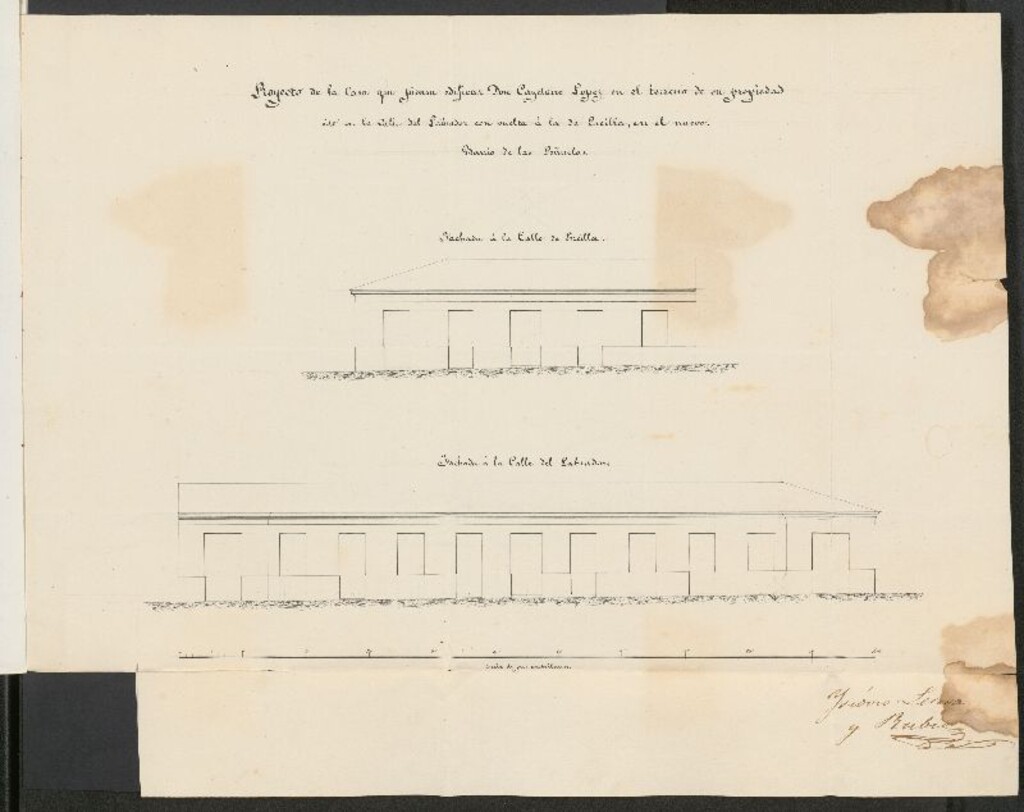 Proyecto de la Casa que piensa edificar Don Cayetano Lopez en el terreno de su propiedad
en la Calle del Labrador con vuelta á la de Ercilla, en el nuevo
Barrio de las Peñuelas
Fachada á la Calle de Ercilla.
Fachada á la Calle del Labrador
Ysidro
y Rubio